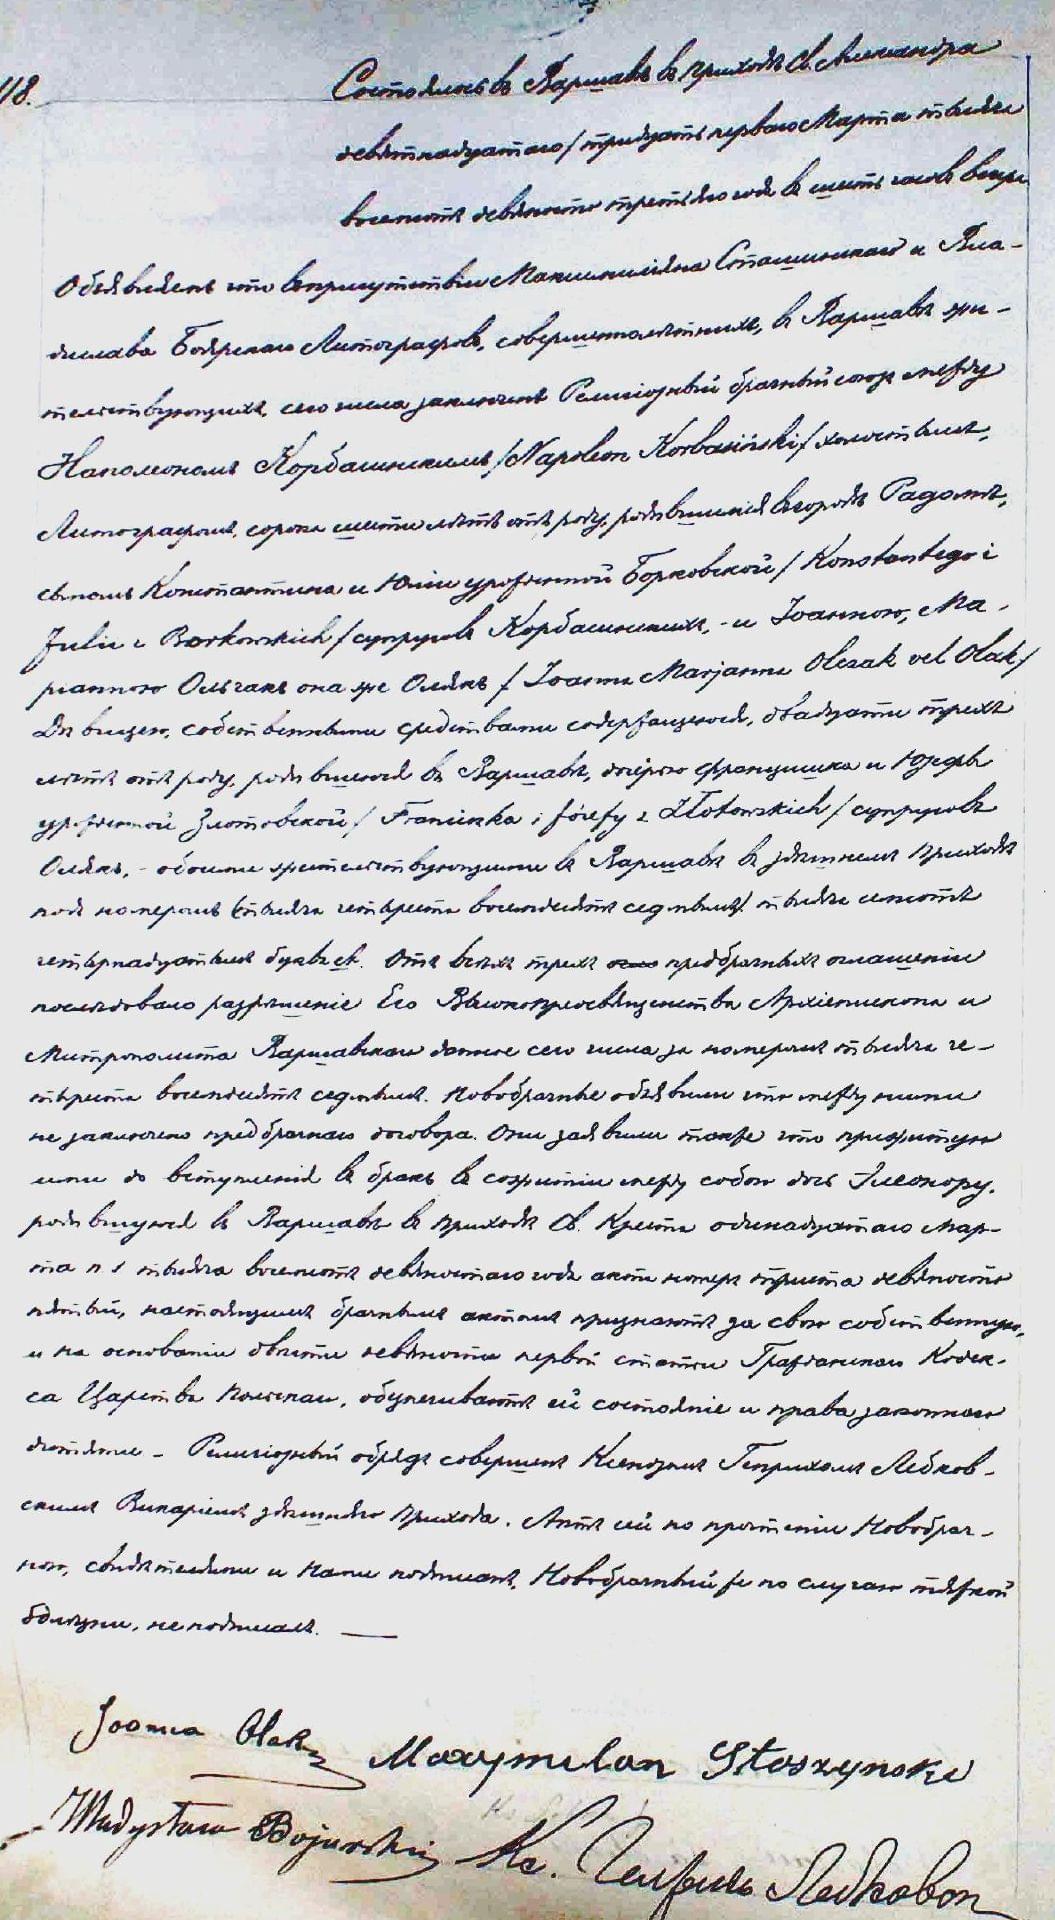 118.
Состоялось въ Варшавѣ въ приходѣ Св. Александра
девятнадцатаго / тридцать перваго Марта тысяча
восемьсотъ девяносто третьяго года въ шесть часовъ вечера
Объявляемъ что въ присутствіи Максимиліана Сташинскаго и Вла-
дислава Боярскаго Литографовъ, совершеннолѣтнихъ, въ Варшавѣ жи-
тельствующихъ, сего числа заключенъ Религіозный брачный союзъ между
Наполеономъ Корбашинскимъ / Napoleon Korbasiński / холостымъ,
Литографомъ, сорока шести лѣтъ отъ роду, родившимся въ городѣ Радомѣ,
сыномъ Константина и Юліи урожденной Борковской / Konstantego i
Julii z Borkowskich / супруговъ Корбашинскихъ, - и Іоанною, Ма-
ріанною Ольчакъ она же Олякъ / Joanna Marjanna Olczak vel Olak /
Дѣвицею, собственными средствами содержащеюся, двадцати трехъ
лѣтъ отъ роду, родившеюся въ Варшавѣ, дочерью Францишка и Юзефы
урожденной Злотовской / Franciszka i Józefy z Złotowskich / супруговъ
Олякъ, - обоими жительствующими въ Варшавѣ въ здѣшнемъ приходѣ
подъ номеромъ тысяча четыреста восемьдесятъ седьмымъ / тысяча семьсотъ
четырнадцатымъ буква св. Отъ всѣхъ трехъ предбрачныхъ оглашеній
послѣдовало разрѣшеніе Его Высокопреосвященства Архіепископа и
Митрополита Варшавскаго данное сего числа за номеромъ тысяча че-
тыреста восемьдесятъ седьмымъ. Новобрачные объявили что между ними
не заключено предбрачнаго договора. Они заявили также что прижитую
ими до вступленія въ бракъ въ сожитіи между собою дочь Элеонору,
родившуюся въ Варшавѣ въ приходѣ Св. Креста одинадцатаго мар-
та н/с тысяча восемьсотъ девяностаго года актъ номеръ триста девяносто
пятый, настоящимъ брачнымъ актомъ признаютъ за свою собственную,
и на основаніи двѣсти девяносто первой статьи Гражданскаго Кодек-
са Царства Польскаго, обезпечиваютъ ей состояніе и права законнаго
дитяти - Религіозный обрядъ совершенъ Ксендзомъ Генрихомъ Ледков-
скимъ Викаріемъ здѣшняго прихода. Актъ сей по прочтеніи Новобрач-
ною, свидѣтелями и Нами подписанъ, Новобрачный же по случаю тяжкой
болѣзни, не подписалъ.
Joanna Olak
Maxymilan Staszynski
Władysław Bojarski
Кс. Генрихъ Ледковск